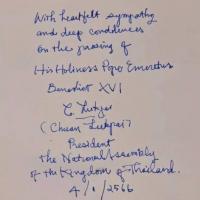 With heartfelt sympathy
and deep condolences
on the passing of
His Holiness Pope Emeritus
Benedict XVI
C. Leekpai
(Chuan Leekpai)
President
the National Assembly
of the Kingdom of Thailand.
4/1/2566